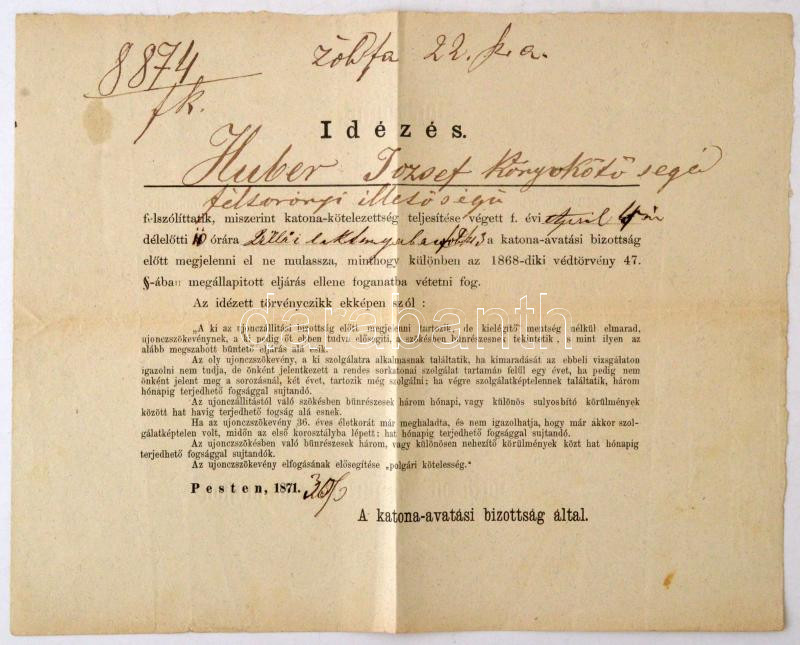 8874
fk.
Zöldfa 22. sz. a.
Idézés.
Huber Jozsef Könyvkötő segé
félsoronyi illetőségü
felszólíttatik, miszerint katona-kötelezettség teljesitése végett f. évi April
délelőtti 10 órára Üllői laktanyában a katona-avatási bizottság
előtt megjelenni el ne mulassza, minthogy különben az 1868-diki védtörvény 47.
§-ában megállapitott eljárás ellene foganatba vétetni fog.
Az idézett törvényczikk ekképen szól :
„A ki az ujonczállitási bizottság előtt megjelenni tartozik, de kielégitő mentség nélkül elmarad,
ujonczszökevénynek, a ki pedig őt ebben tudva elősegiti, szökésben bünrészesnek tekintetik, s mint ilyen az
alább megszabott büntető eljárás alá esik.
Az oly ujonczszökevény, a ki szolgálatra alkalmasnak találtatik, ha kimaradását az ebbeli vizsgálaton
igazolni nem tudja, de önként jelentkezett a rendes sorkatonai szolgálat tartamán felül egy évet, ha pedig nem
önként jelent meg a sorozásnál, két évet, tartozik még szolgálni: ha végre szolgálatképtelennek találtatik, három
hónapig terjedhető fogsággal sujtandó.
Az ujonczállitástól való szökésben bünrészesek három hónapi, vagy különös sulyosbitó körülmények
között hat havig terjedhető fogság alá esnek.
Ha az ujonczszökevény 36. éves életkorát már meghaladta, és nem igazolhatja, hogy már akkor szol-
gálatképtelen volt, midőn az első korosztályba lépett: hat hónapig terjedhető fogsággal sujtandó.
Az ujonczszökésben való bünrészesek három, vagy különösen nehezitő körülmények közt hat hónapig
terjedhető fogsággal sujtandók.
Az ujonczszökevény elfogásának elősegitése „polgári kötelesség."
Pesten, 1871. 30/3
A katona-avatási bizottság által.
darabanth